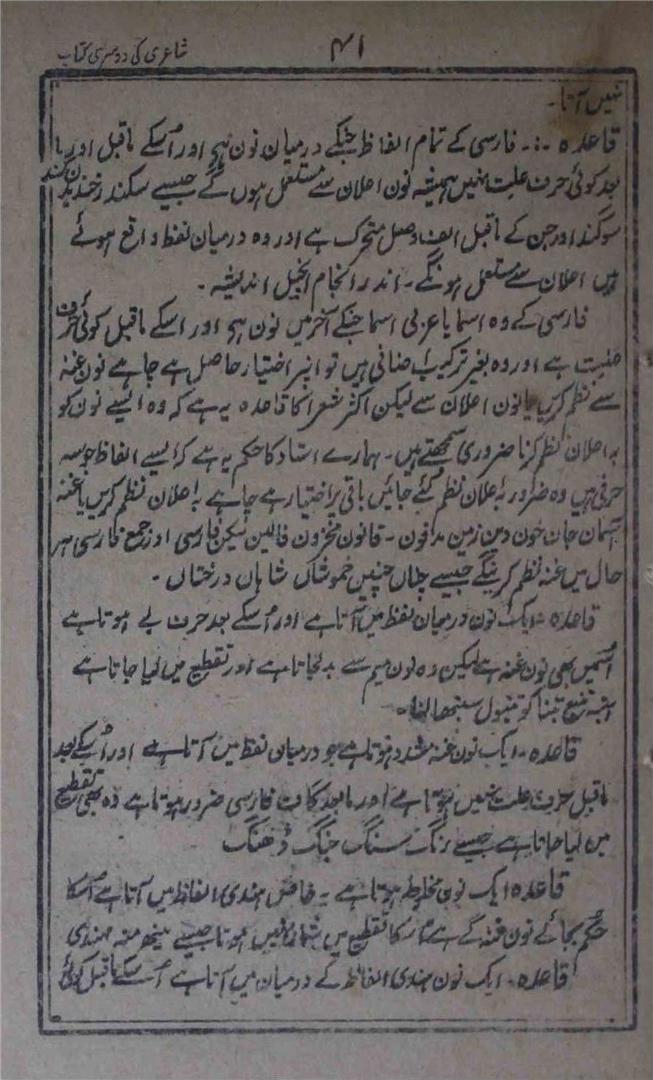 شاعری کی دوسری کتاب
۴۱
نہیں آتا۔
قاعدہ ۔:۔ فارسی کے تمام الفاظ جنکے درمیان نون ہو اور اُسکے ماقبل اور ما
بعد کوئی حرف علت نہیں ہمیشہ نون اعلان سے مستعمل ہوں گے جیسے سکندر
سوگند اور جن کے ماقبل الف وصل متحرک ہے اور وہ درمیان لفظ واقع ہوئے
ہیں اعلان سے مستعمل ہونگے۔ اندر انجام انجیل اندیشہ۔
فارسی کے وہ اسما یا عربی اسما جنکے آخر میں نون ہو اور اسکے ماقبل کوئی حرف
علت ہے اور وہ بغیر ترکیب اضافی ہیں تو انپر اختیار حاصل ہے چاہے نون غنہ
سے نظم کریں یا نون اعلان سے لیکن اکثر شعرا کا قاعدہ یہ ہے کہ وہ ایسے نون کو
بہ اعلان نظم کرنا ضروری سمجھتے ہیں۔ ہمارے استاد کا حکم یہ ہے کہ ایسے الفاظ جو سہ
حرفی ہیں وہ ضرور بہ علان نظم کئے جائیں باقی پر اختیار ہے چاہے بہ اعلان نظم کریں یا غنہ
آسمان جان خون دین زمین مدفون۔ قانون مخزون قالین لیکن فارسی اور جمع فارسی ہر
حال میں غنہ نظم کرینگے جیسے چناں چنیں خموشاں شاہاں درختاں۔
قاعدہ ۔ ایک نون درمیان لفظ میں آتا ہے اور اُسکے بعد حرف بے ہوتا ہے
اُسمیں بھی نون غنہ ہے لیکن وہ نون میم سے بدلجاتا ہے اور تقطیع میں لیا جاتا ہے
تنبول سنبھالنا۔
قاعدہ ۔ ایک نون غنہ مشدد ہوتا ہے جو درمیان لفظ میں آتا ہے اور اُسکے بعد
ماقبل حرف علت نہیں ہوتا ہے اور مابعد کاف فارسی ضرور ہوتا ہے وہ بھی تقطیع
میں لیا جاتا ہے جیسے رنگ سنگ جنگ ڈھنگ
قاعدہ ایک نون مخلوط ہوتا ہے۔ خاص ہندی الفاظ میں آتا ہے اُسکا
حکم بجائے نون غنہ کے ہے اُسکا تقطیع میں شمار نہیں ہوتا جیسے منہ ہندی
قاعدہ ۔ ایک نون ہندی الفاظ کے درمیان میں آتا ہے اُسکے ماقبل کوئی